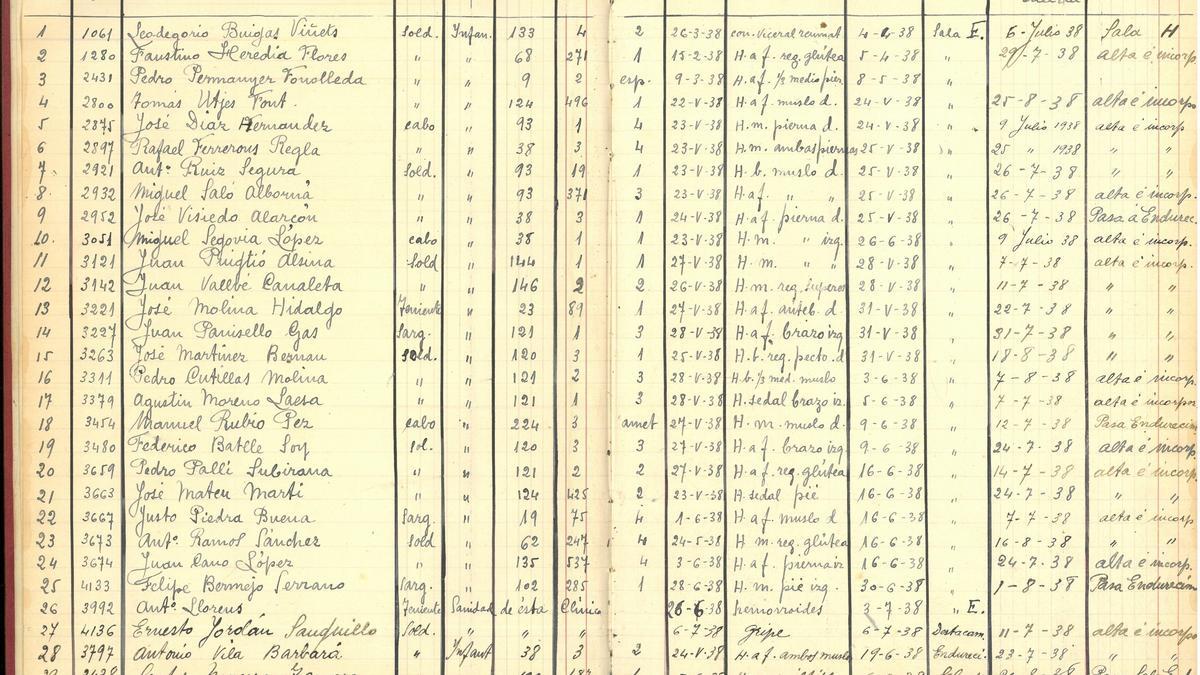 1 1061 Leodegorio Buigas Viñets Sold. Infan. 133 4 2 26-3-38 con. viceral reumat 4-6-38 Sala E. 6-Julio 38 Sala H
2 1280 Faustino Heredia Flores " " 68 271 1 15-2-38 H. a f. reg. glútea 5-4-38 " 29-7-38 alta é incorp
3 2431 Pedro Permanyer Fonolleda " " 9 2 esp. 9-3-38 H. a f. ⅓ medio pier. 8-5-38 " " "
4 2800 Tomás Utjes Font. " " 124 496 1 22-V-38 H. a f. muslo d. 24-V-38 " 25-8-38 alta é incorp
5 2875 José Diaz Hernandez cabo " 93 1 4 23-V-38 H. m. pierna d. 24-V-38 " 9 Julio 1938 alta é incorp
6 2897 Rafael Ferrerous Regla " " 38 3 4 23-V-38 H. m. ambas piernas 25-V-38 " 25 " 1938 " "
7. 2921 Antº Ruiz Segura Sold. " 93 19 1 23-V-38 H. b. muslo d. 25-V-38 " 26-7-38 " "
8. 2932 Miguel Saló Alborná " " 93 371 3 23-V-38 H. a f. " " 25-V-38 " 26-7-38 alta é incorp.
9 2952 José Visiedo Alarcón " " 38 3 1 24-V-38 H. a f. pierna d. 25-V-38 " 26-7-38 Pasa a Endurec.
10. 3051 Miguel Segovia López cabo " 38 1 1 23-V-38 H. m. " izq. 26-6-38 " 9 Julio 38 alta é incorp.
11 3121 Juan Puigtió Alsina Sold " 144 1 1 27-V-38 H. m. " " 28-V-38 " 7-7-38 alta é incorp.
12 3142 Juan Vallvé Canaleta " " 146 2 2 26-V-38 H. m. reg. superor 28-V-38 " 11-7-38 " "
13 3221 José Molina Hidalgo Teniente " 23 89 1 27-V-38 H. a f. anteb. d. 31-V-38 " 22-7-38 " "
14 3227 Juan Panisello Gas Sarg. " 121 1 3 28-V-38 H. a f. brazo izq 31-V-38 " 31-7-38 " "
15 3263 José Martinez Bernau Sold. " 120 3 1 25-V-38 H. b. reg. pecto. d 31-V-38 " 18-8-38 " "
16 3311 Pedro Cutillas Molina " " 121 2 3 28-V-38 H. b. ⅓ med. muslo 3-6-38 " 7-8-38 alta é incorp.
17 3379 Agustin Moreno Laesa " " 121 1 3 28-V-38 H. sedal brazo iz. 5-6-38 " 7-7-38 alta é incorpor
18 3454 Manuel Rubio Pez cabo " 224 3 amet 27-V-38 H. m. muslo d. 9-6-38 " 12-7-38 Pasa Endurecim
19 3480 Federico Batlle Soy sol. " 120 3 3 27-V-38 H. a f. brazo izq 9-6-38 " 24-7-38 alta é incorp.
20 3659 Pedro Pallí Subirana " " 121 2 2 27-V-38 H. a f. reg. glútea 16-6-38 " 14-7-38 alta é incorp.
21 3663 José Mateu Marti " " 124 425 2 23-V-38 H. sedal pié 16-6-38 " 24-7-38 " "
22 3667 Justo Piedra Buena Sarg. " 19 75 4 1-6-38 H. a f. muslo d 16-6-38 " 7-7-38 alta é incorp
23 3673 Antº. Ramos Sánchez Sold " 62 247 4 24-5-38 H. m. reg. glútea 16-6-38 " 16-8-38 " "
24 3674 Juan Cano López " " 135 537 4 3-6-38 H. a f. pierna iz 16-6-38 " 24-7-38 alta é incorp.
25 4133 Felipe Bermejo Serrano Sarg. " 102 285 1 28-6-38 H. m. pié izq. 30-6-38 " 1-8-38 Pasa Endurecim
26 3992 Antº Llorens Teniente Sanidad de ésta Clínica 26-6-38 hemorroides 3-7-38 " E.
27 4136 Ernesto Jordán Sanguillo Sold. " " " 6-7-38 gripe 6-7-38 Destacam. 11-7-38 alta é incorp
28 3797 Antonio Vila Barbará " Infant 38 3 2 24-V-38 H. a f. ambos muslo 19-6-38 Endureci. 23-7-38 " "